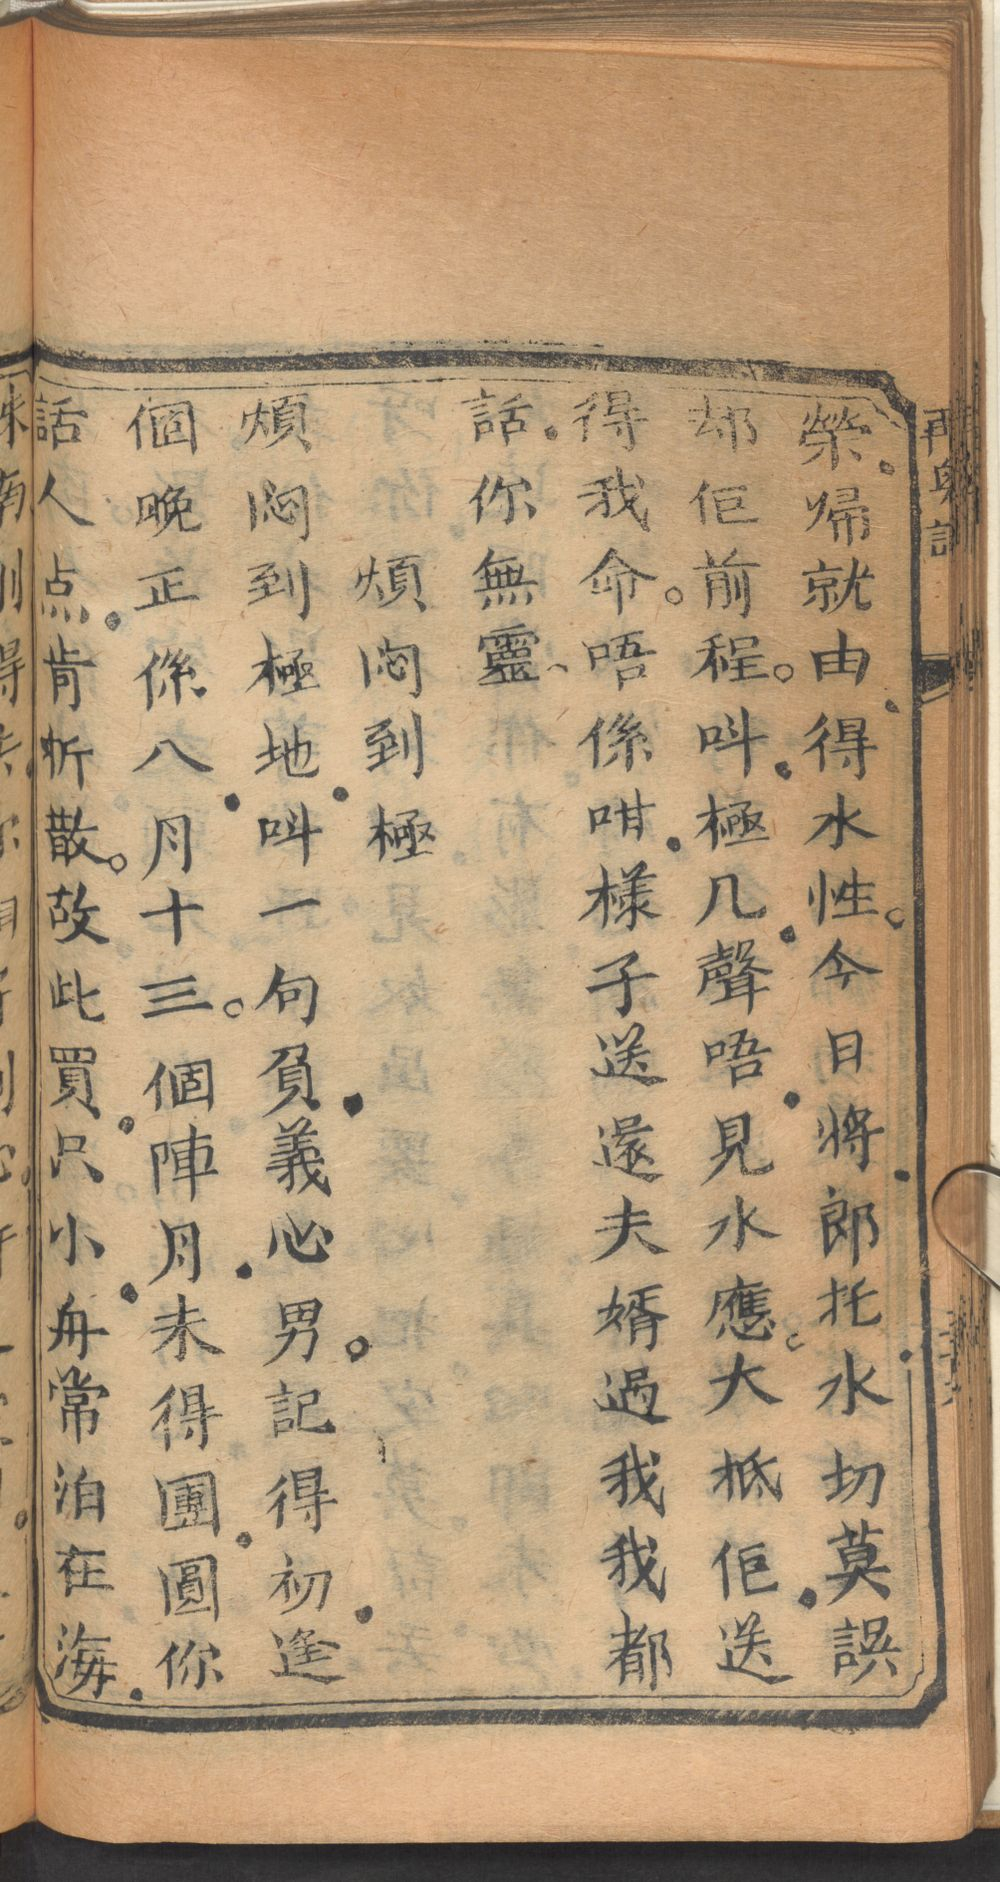 榮歸就由得水性。今日將郎托水切莫誤
却佢前程。叫極几聲唔見水應。大抵佢送
得我命。唔係咁樣子送還夫婿過我我都
話你無靈
煩悶到極
煩悶到極地叫一句負義心男。記得初逢
個晚正係八月十三。個陣月未得團圓你
話人点肯折散。故此買只小舟常泊在海